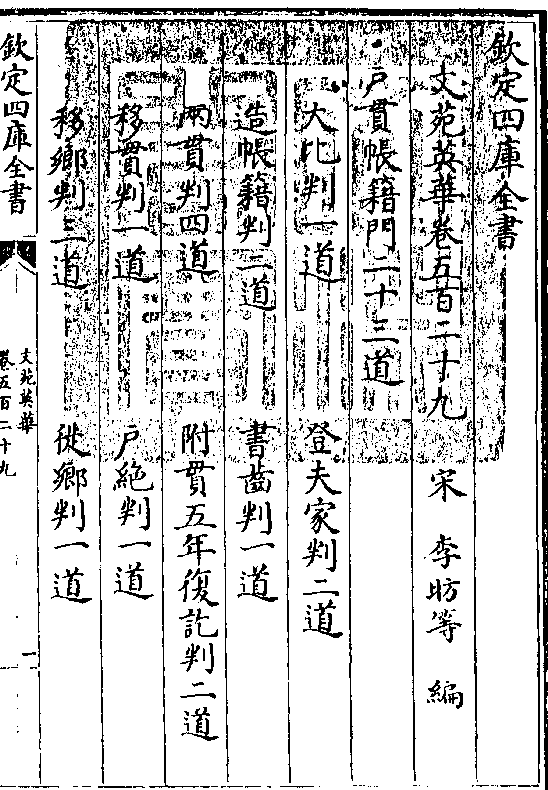 欽定四庫全書
文苑英華卷五百二十九 宋 李昉等 編
戸貫帳籍門二十三道
大比判一道 登夫家判二道
造帳籍判二道 書齒判一道
兩貫判四道 附貫五年復訖判二道
移貫判一道 戸絶判一道
移鄉判三道 徙鄉判一道
欽定四庫全書
文苑英華
卷五百二十九
一